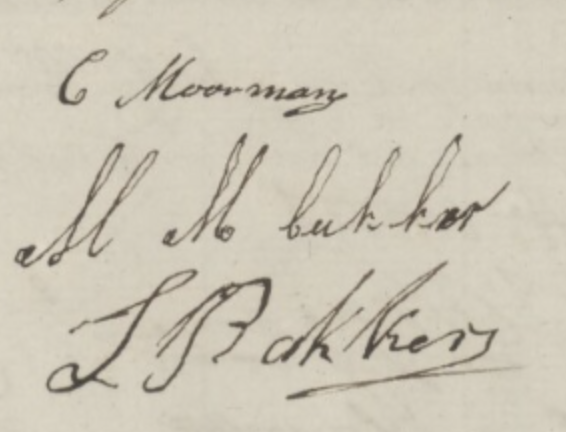 C Moorman
M M bakker
L Bakker